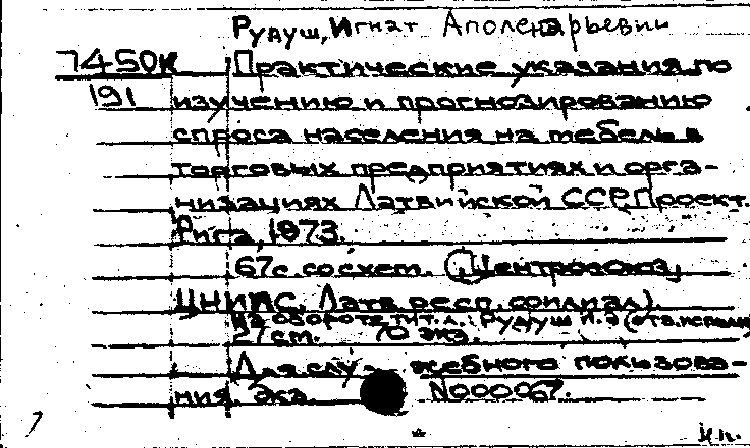 Рудуш, Игнат Аполенарьевич
74-50к Практические указания по
191 изучению и прогнозированию
спроса населения на мебель в
торговых предприятиях и орга-
низациях Латвийской ССР. Проект.
Рига, 1973.
67с. со схем. (Центросоюз,
ЦНИИС, Латв. респ. филиал).
На обороте тит. л.: Рудуш И. А (отв. исполн
27 см. 70 экз.
Для слу- жебного пользова-
ния. Экз. N000067.
н.п.